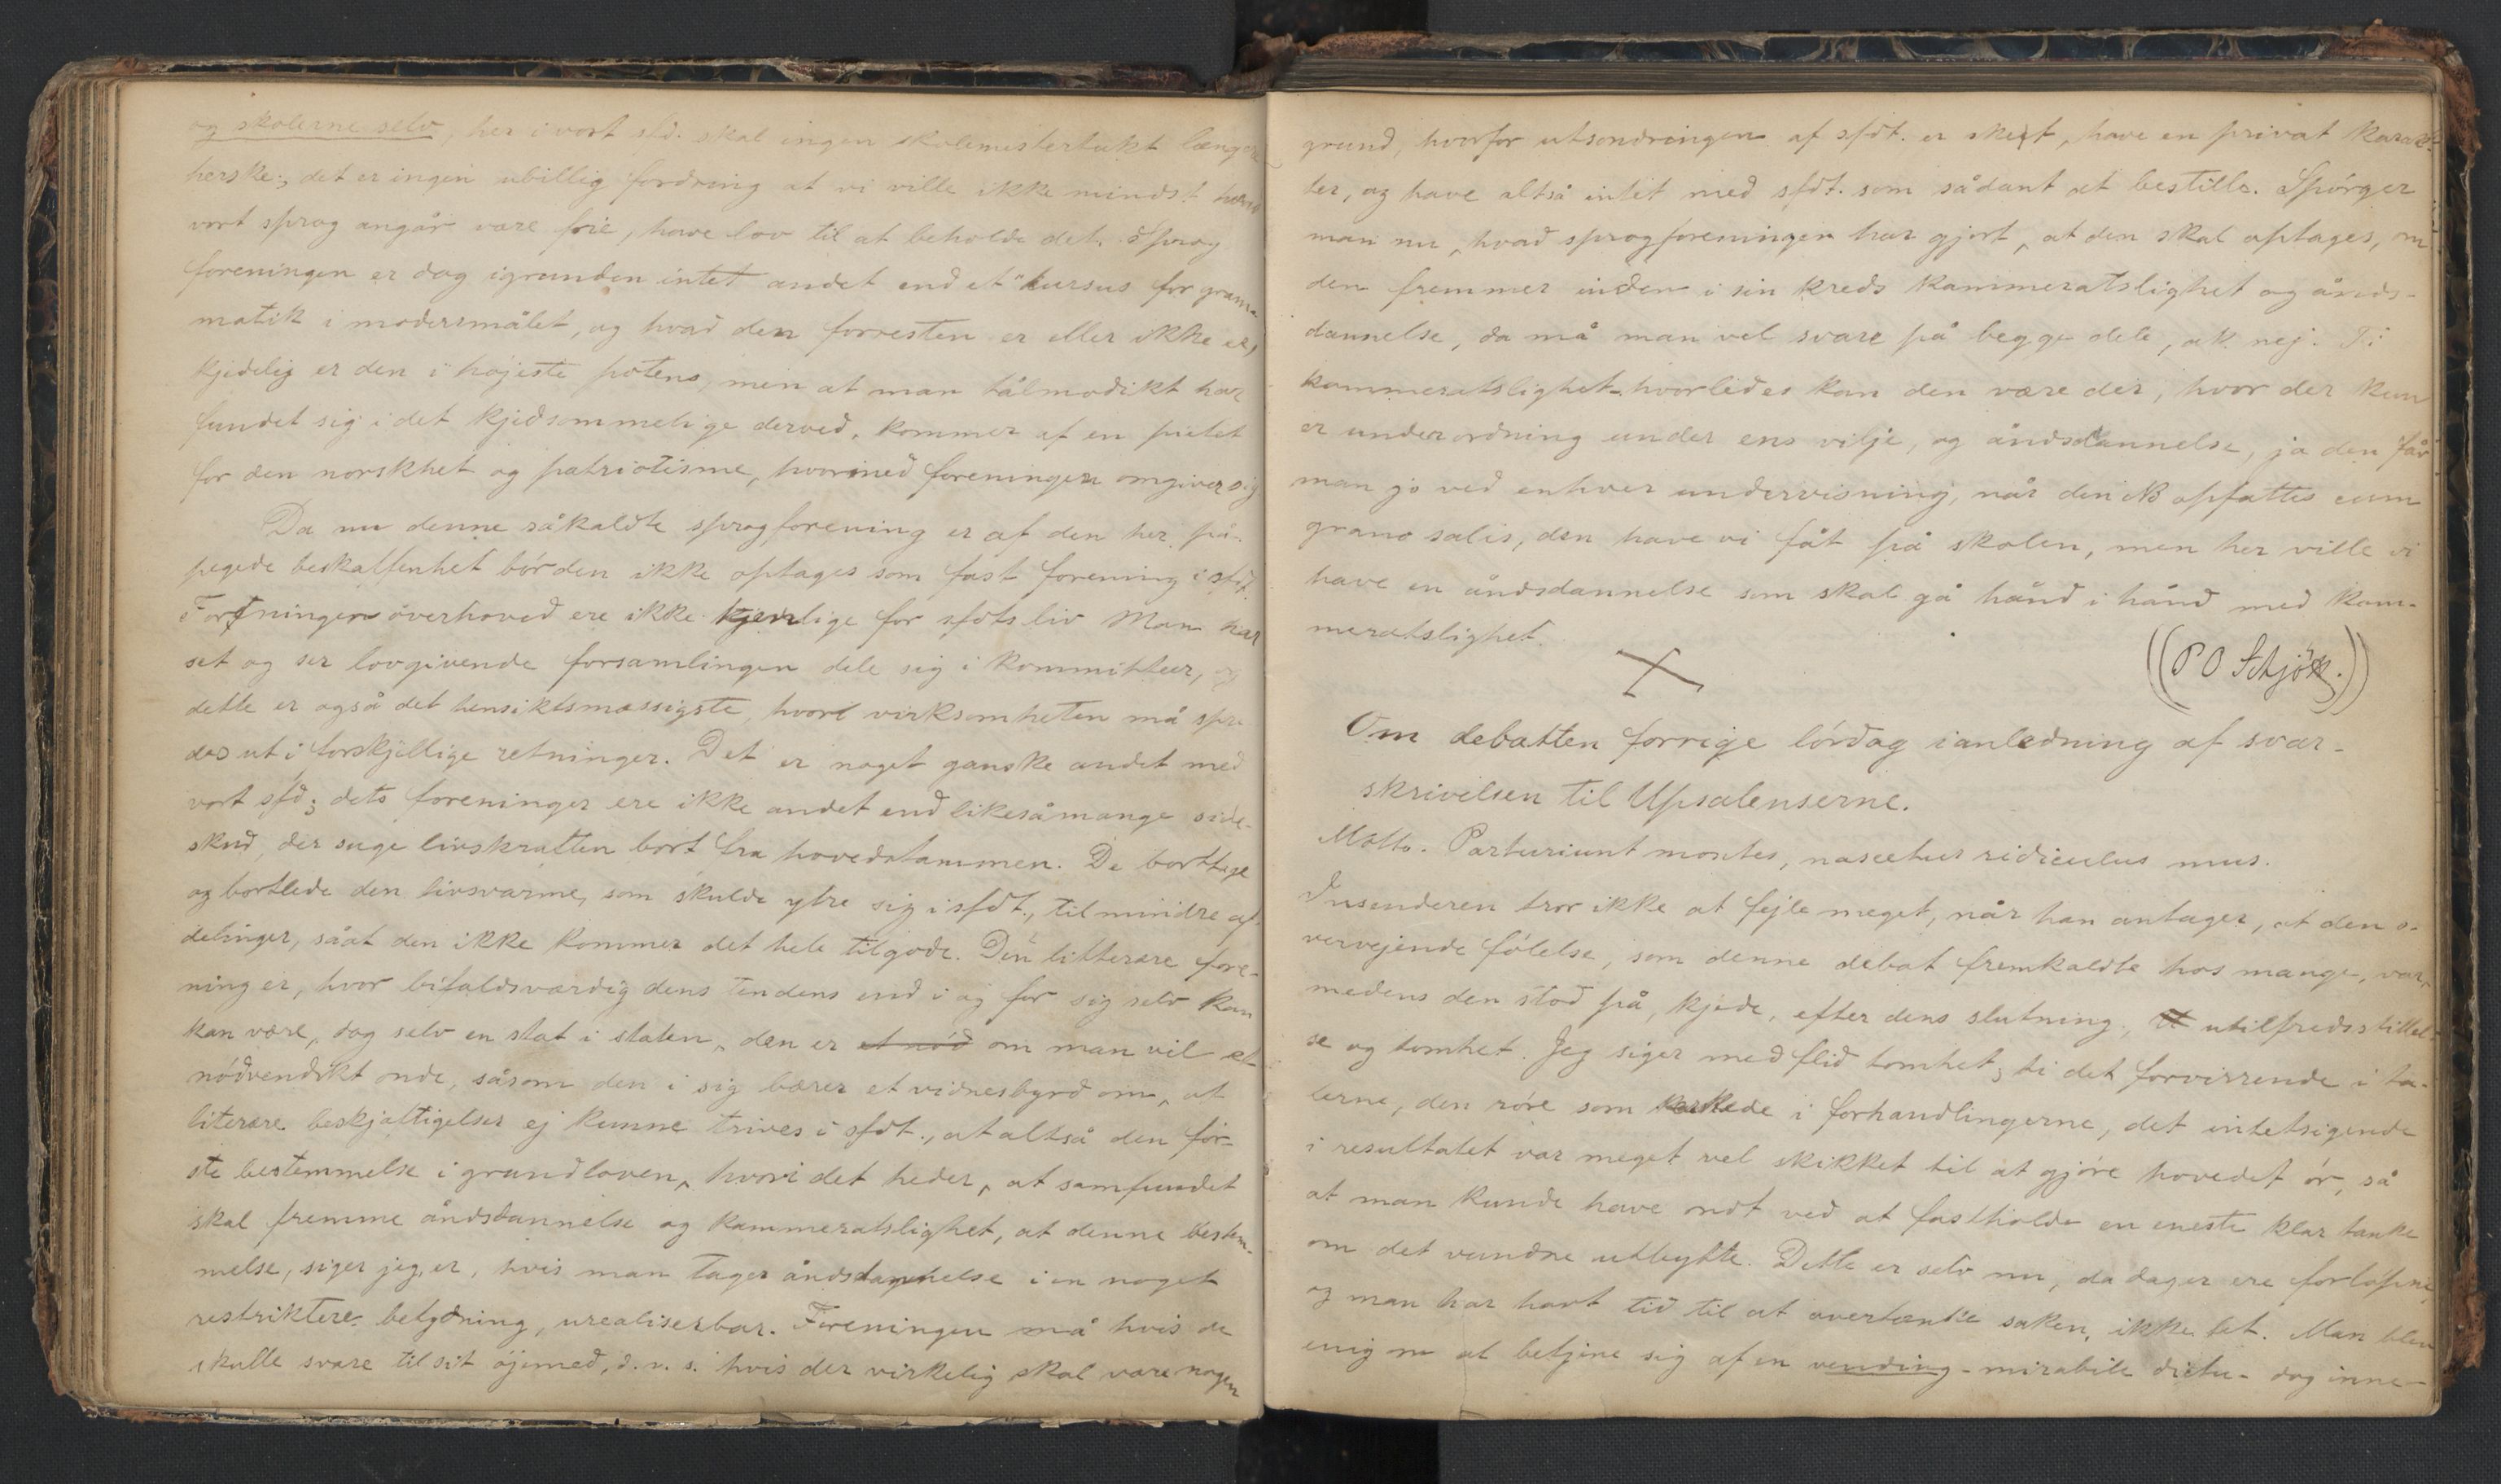 og skolerne selv, her i vort sfd. skal ingen skolemestertukt længer
herske; det er ingen ubillig fordring at vi ville ikke mindst hvad
vort sprog angår være frie, have lov til at beholde det. Sprog
foreningen er dog igrunden intet andet end et kursus for gram
matik i modersmålet, og hvad den forresten er eller ikke er,
kjedelig er den i højeste potens, men at man tålmodikt har
fundet sig i det kjedsommelige derved, kommer af en pietet
for den norskhet og patriotisme, hvormed foreningen omgiver sig
Da nu denne såkaldte sprogforening er af den her på-
pegede beskaffenhet bør den ikke optages som fast forening i sfdt.
Foreninger overhoved ere ikke tjenlige for sfdts liv Man har
set og ser lovgivende forsamlingen dele sig i kommitteer, og
dette er også det hensiktsmæssigste, hvor virksomheten må spre
des ut i forskjellige retninger. Det er noget ganske andet med
vort sfd; dets foreninger ere ikke andet end likesåmange side-
skud, der suge livskraften bort fra hovedstammen. De borttage
og bortlede den livsvarme, som skulde ytre sig i sfdt., til mindre af-
delinger, såat den ikke kommer det hele tilgode. Den litterære fore-
ning er, hvor bifaldsværdig dens tendens end i og for sig selv kan
kan være, dog selv en stat i staten, den er et nód om man vil et
nódvendikt onde, såsom den i sig bærer et vidnesbyrd om, at
literære beskjæftigelser ej kunne trives i sfdt., at altså den før-
ste bestemmelse i grundloven, hvori det heder, at samfundet
skal fremme åndsdannelse og kammeratslighet, at denne bestem-
melse, siger jeg, er, hvis man tager åndsdannelse i en noget
restriktere betydning, urealiserbar. Foreningen må hvis de
skulle svare til sit øjemed, d. v. s. hvis der virkelig skal være nogen
grund, hvorfor utsondringen af sfdt. er skeet, have en privat karak-
ter, og have altså intet med sfdt. som sådant at bestille. Spórger
man nu, hvad sprogforeningen har gjort, at den skal optages, om
den fremmer inden i sin kreds kammeratslighet og ånds-
dannelse, da må man vel svare på begge dele, ak nej. Ti
kammeratslighet – hvorledes kan den være der, hvor der kun
er underordning under ens vilje, og åndsdannelse, ja den får
man jo ved enhver undervisning, når den NB opfattes cum
grano salis, den have vi fåt på skolen, men her ville vi
have en åndsdannelse som skal gå hånd i hånd med kam-
meratslighet.
((P O Schjött.))
Om debatten forrige lórdag i anledning af svar-
skrivelsen til Upsalenserne.
Motto. Parturiunt montes, nascetur ridiculus mus.
Insenderen tror ikke at fejle meget, når han antager, at den o-
vervejende fólelse, som denne debat fremkaldte hos mange, var,
medens den stod på, kjede, efter dens slutning, utilfredsstillel-
se og tomhet. Jeg siger med flid tomhet; ti det forvirrende i ta-
lerne, den róre som herskede i forhandlingerne, det intetsigende
i resultatet var meget vel skikket til at gjóre hovedet ór, så
at man kunde have ondt ved at fastholde en eneste klar tanke
om det vundne utbytte. Dette er selv nu, da dager ere forlópne,
og man har havt tid til at overtænke saken, ikke let. Man blev
enig om at betjene sig af en vending – mirabile dictu – dog inne-